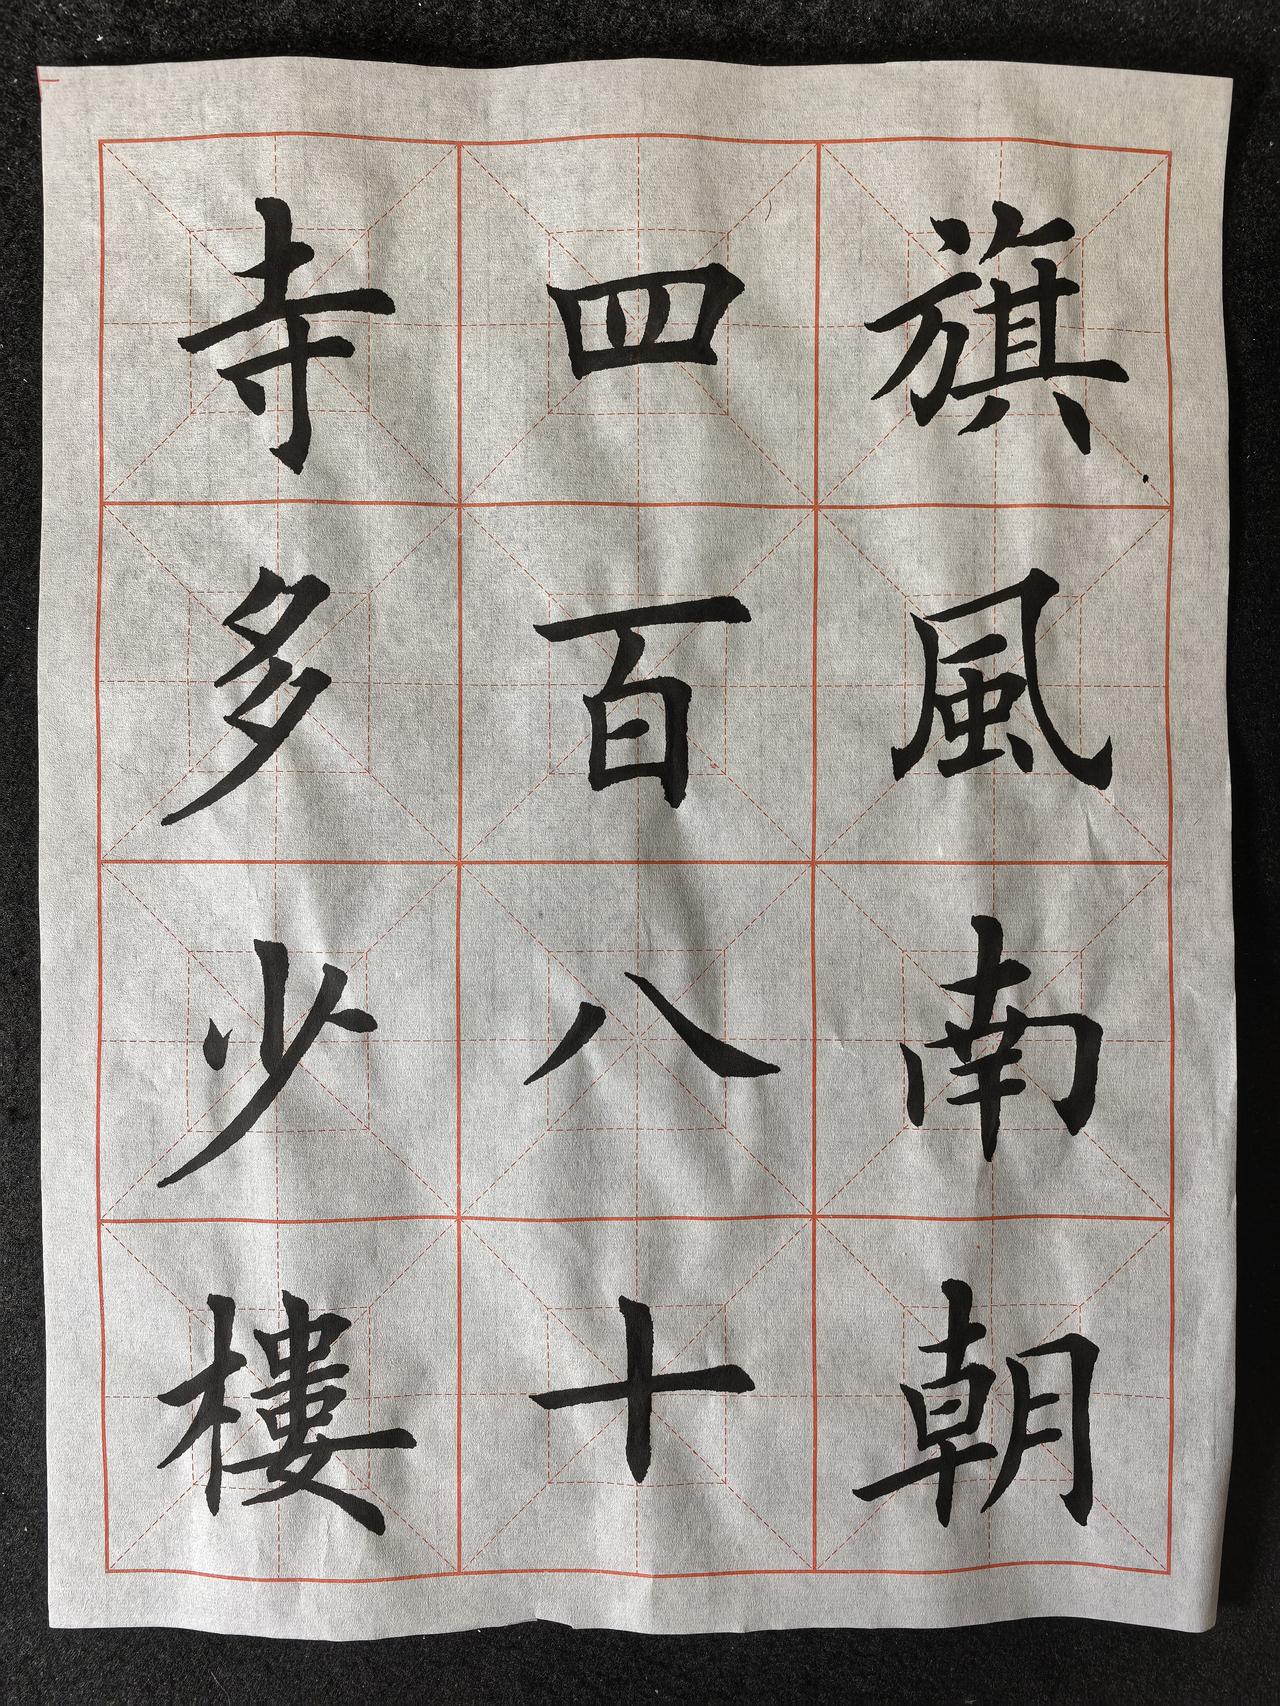 旗風南朝
四百八十
寺多少樓